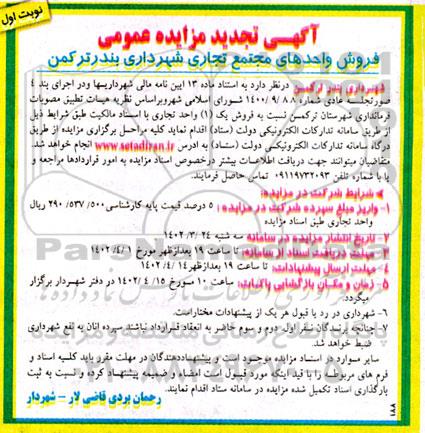 نوبت اول
آگهی تجدید مزایده عمومی
فروش واحدهای مجتمع تجاری شهرداری بندرترکمن
شهرداری بندر ترکمن درنظر دارد به استناد ماده ۱۳ آیین نامه مالی شهرداریها ودر اجرای بند ۴
صورتجلسه عادی شماره ۸۸ /۹ /۱۴۰۰ شورای اسلامی شهروبراساس نظریه هیات تطبیق مصوبات
فرمانداری شهرستان ترکمن نسبت به فروش یک (۱) واحد تجاری با اسناد مالکیت طبق شرایط ذیل
از طریق سامانه تدارکات الکترونیکی دولت (ستاد) اقدام نماید کلیه مراحل برگزاری مزایده از طریق
درگاه سامانه تدارکات الکترونیکی دولت (ستاد) به آدرس www.setadiran.ir انجام خواهد شد.
متقاضیان میتوانند جهت دریافت اطلاعات بیشتر درخصوص اسناد مزایده به امور قراردادها مراجعه و
یا با شماره تلفن ۰۹۱۱۹۷۳۲۰۹۳ تماس حاصل فرمایند.
شرایط شرکت در مزایده:
۱- واریز مبلغ سپرده شرکت در مزایده: ۵ درصد قیمت پایه کارشناسی ۵۰۰/ ۵۳۷/ ۲۹۰ ریال
واحد تجاری طبق اسناد مزایده
۲- تاریخ انتشار مزایده در سامانه: سه شنبه ۲۴ /۳ /۱۴۰۲
۳- مهلت دریافت اسناد از سامانه: تا ساعت ۱۹ بعدازظهر مورخ ۱ /۴ /۱۴۰۲
۴- مهلت ارسال پیشنهادات: تا ساعت ۱۹ بعدازظهر ۱۴ /۴ /۱۴۰۲
۵- زمان و مکان بازگشایی پاکات: ساعت ۱۰ مورخ ۱۵ /۴ /۱۴۰۲ در دفتر شهردار برگزار
میگردد.
۶- شهرداری در رد یا قبول هر یک از پیشنهادات مختاراست.
۷- چنانچه برندگان نفر اول دوم و سوم حاضر به انعقاد قرارداد نباشند سپرده آنان به نفع شهرداری
ضبط خواهد شد.
سایر موارد در اسناد مزایده موجود است و پیشنهاددهندگان در مهلت مقرر باید کلیه اسناد و
فرم های مربوطه را با قید اینکه مورد قبول است امضاء و ضمیمه پیشنهاد کرده و نسبت به ثبت
بارگذاری اسناد تکمیل شده مزایده در سامانه ستاد اقدام نمایند.
رحمان بردی قاضی لار - شهردار